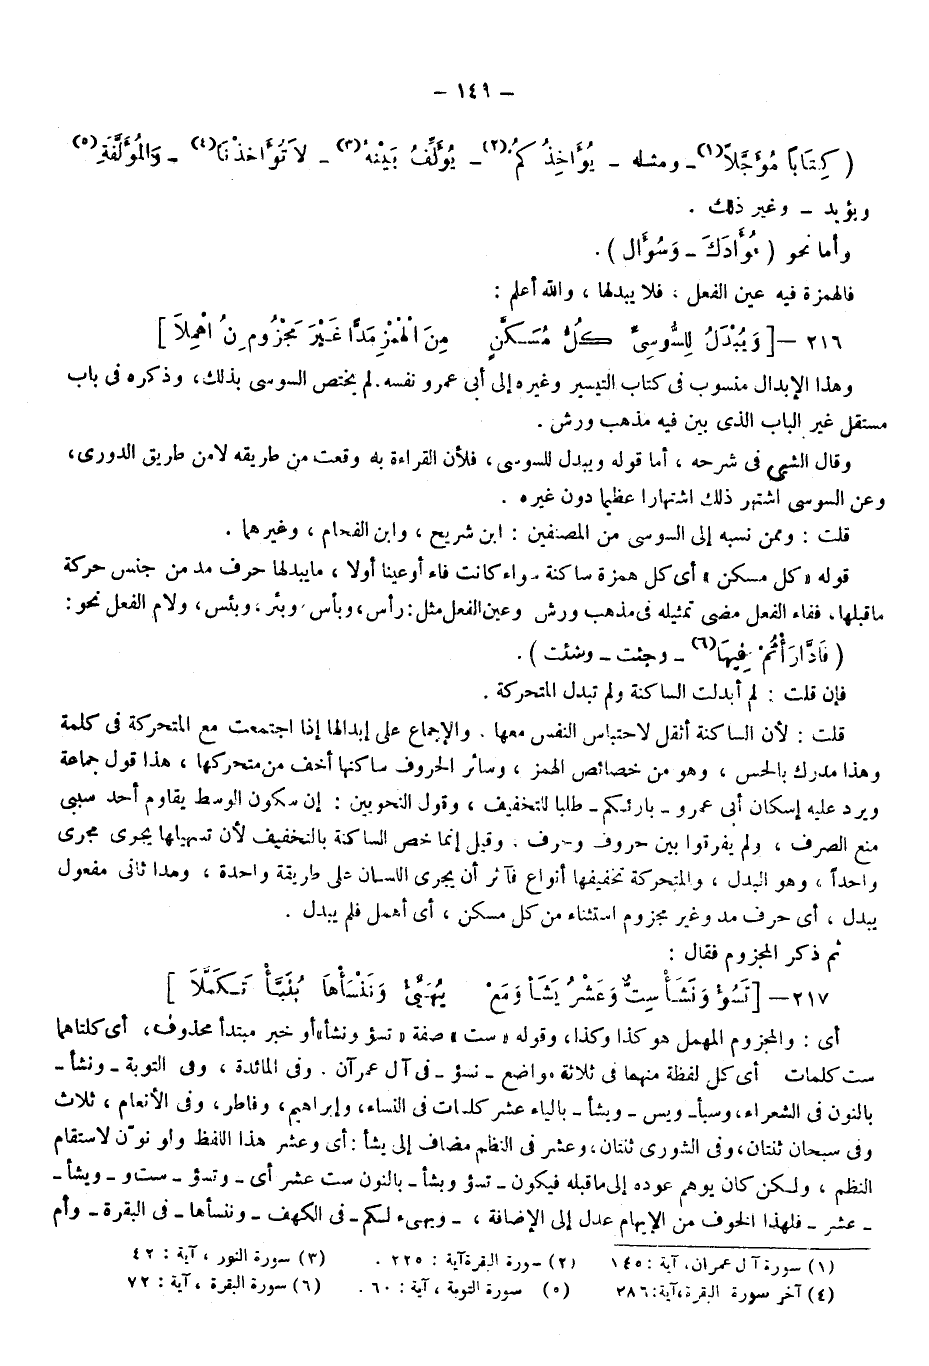 – ١٤٩ –
( كِتَاباً مُؤَجَّلاً(١) – ومثله – يُؤَاخِذُ كُمُ(٢) – يُؤَلِّفُ بَيْنَهُ(٣) – لاَ تُؤَاخِذْنَا(٤) – وَالمُؤَلَّفَةِ(٥)
ويؤيد – وغير ذلك .
وأما نحو ( فُؤَادَكَ – وَسُؤَال ) .
فالهمزة فيه عين الفعل ، فلا يبدلها ، والله أعلم :
٢١٦ – [ وَيُبْدَلُ لِلسُّوسِىِّ كُلُّ مُسَكَّنٍ مِنَ الْهَمْزِ مَدًّا غَيْرَ مَجْزُومٍ نُ اهْمِلاَ ]
وهذا الإبدال منسوب فى كتاب التيسير وغيره إلى أبى عمرو نفسه . لم يختص السوسى بذلك ، وذكره فى باب
مستقل غير الباب الذى بين فيه مذهب ورش .
وقال الشيخ فى شرحه ، أما قوله ويبدل للسوسى ، فلأن القراءة به وقعت من طريقه لا من طريق الدورى ،
وعن السوسى اشتهر ذلك اشتهارا عظيما دون غيره .
قلت : وممن نسبه إلى السوسى من المصنفين : ابن شريح ، وابن الفحام ، وغيرهما .
قوله « كل مسكن » أى كل همزة ساكنة سواء كانت فاء أو عينا أو لا ، ما يبدلها حرف مد من جنس حركة
ما قبلها ، ففاء الفعل مضى تمثيله فى مذهب ورش وعين الفعل مثل : رأس ، وبأس ، وبئر ، وبئس ، ولام الفعل نحو :
( فَادَّارَأْتُمْ فِيهَا(٦) – وجئت – وشئت ) .
فإن قلت : لم أبدلت الساكنة ولم تبدل المتحركة .
قلت : لأن الساكنة أثقل لاحتباس النفس معها . والإجماع على إبدالها إذا اجتمعت مع المتحركة فى كلمة
وهذا مدرك بالحس ، وهو من خصائص الهمز ، وسائر الحروف ساكنها أخف من متحركها ، هذا قول جماعة
ويرد عليه إسكان أبى عمرو – بارئكم – طلبا للتخفيف ، وقول النحويين : إن سكون الوسط يقاوم أحد سببى
منع الصرف ، ولم يفرقوا بين حروف وحرف . وقيل إنما خص الساكنة بالتخفيف لأن تسهيلها يجرى مجرى
واحداً ، وهو البدل ، والمتحركة تخفيفها أنواع فآثر أن يجرى اللسان على طريقة واحدة ، وهدا ثانى مفعول
يبدل ، أى حرف مد وغير مجزوم استثناء من كل مسكن ، أى أهمل فلم يبدل .
ثم ذكر المجزوم فقال :
٢١٧ – [ تَسُؤْ وَنَشَأْ سِتٌّ وَعَشْرُ يَشَأْ وَمَعْ يُهَيِّئْ وَنَنْسَأْهَا يُنَبَّأْ تَكَمَّلاَ ]
أى : والمجزوم المهمل هو كذا وكذا ، وقوله « ست » صفة « تسؤ ونشأ » أو خبر مبتدأ محذوف ، أى كلتاهما
ست كلمات أى كل لفظة منهما فى ثلاثة مواضع – تسؤ – فى آل عمرآن . وفى المائدة ، وفى التوبة – ونشأ –
بالنون فى الشعراء ، وسبأ – ويس – ويشأ – بالياء عشر كلمات فى النساء ، وإبراهيم ، وفاطر ، وفى الأنعام ، ثلاث
وفى سبحان ثنتان ، وفى الشورى ثنتان ، وعشر فى النظم مضاف إلى يشأ : أى وعشر هذا اللفظ ولو نوّن لاستقام
النظم ، ولكن كان يوهم عوده إلى ما قبله فيكون – تسؤ ويشأ – بالنون ست عشر أى – وتسؤ – ست و – ويشأ –
– عشر – فلهذا الخوف من الإيهام عدل إلى الإضافة ، – ويهىء لكم – فى الكهف – وننسأها – فى البقرة – وأم
(١) سورة آل عمران ، آية : ١٤٥ (٢) سورة البقرة آية : ٢٢٥ . (٣) سورة النور ، آية : ٤٢
(٤) آخر سورة البقرة ، آية : ٢٨٦ (٥) سورة التوبة ، آية : ٦٠ . (٦) سورة البقرة ، آية : ٧٢